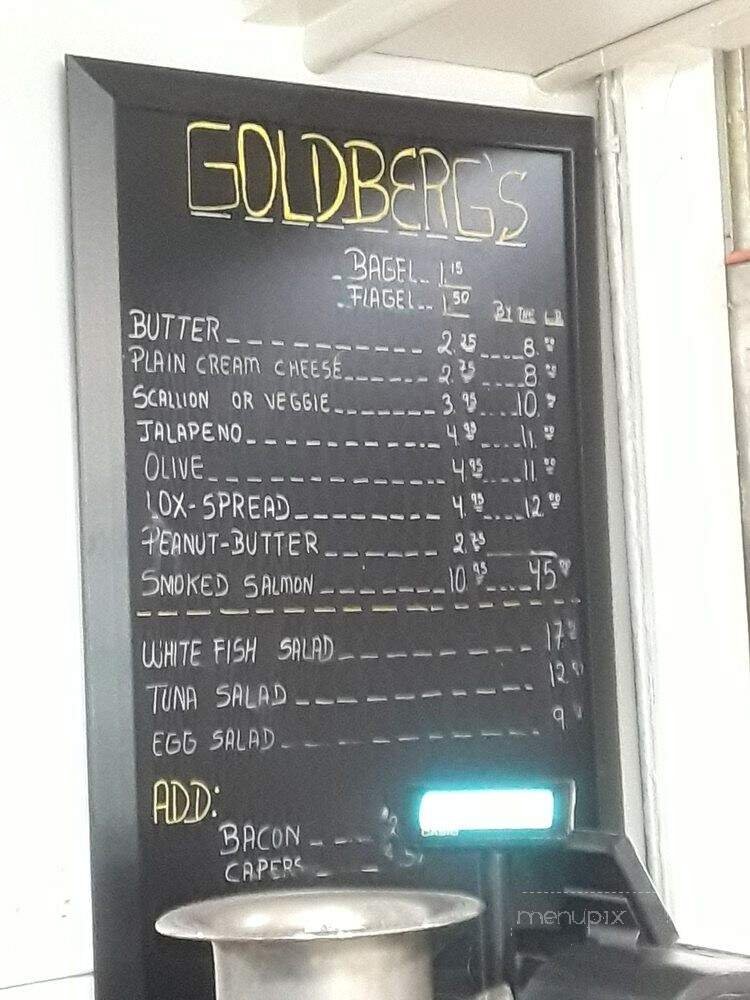 GOLDBERG'S
BAGEL 1.15
FLAGEL 1.50
BY THE LB
BUTTER 2.25 8.00
PLAIN CREAM CHEESE 2.75 8.00
SCALLION OR VEGGIE 3.95 10.00
JALAPENO 4.95 11.00
OLIVE 4.95 11.00
LOX-SPREAD 4.95 12.00
PEANUT-BUTTER 2.75
SMOKED SALMON 10.95 45.00
WHITE FISH SALAD 17
TUNA SALAD 12
EGG SALAD 9
ADD:
BACON $2
CAPERS
CASIO
menupix